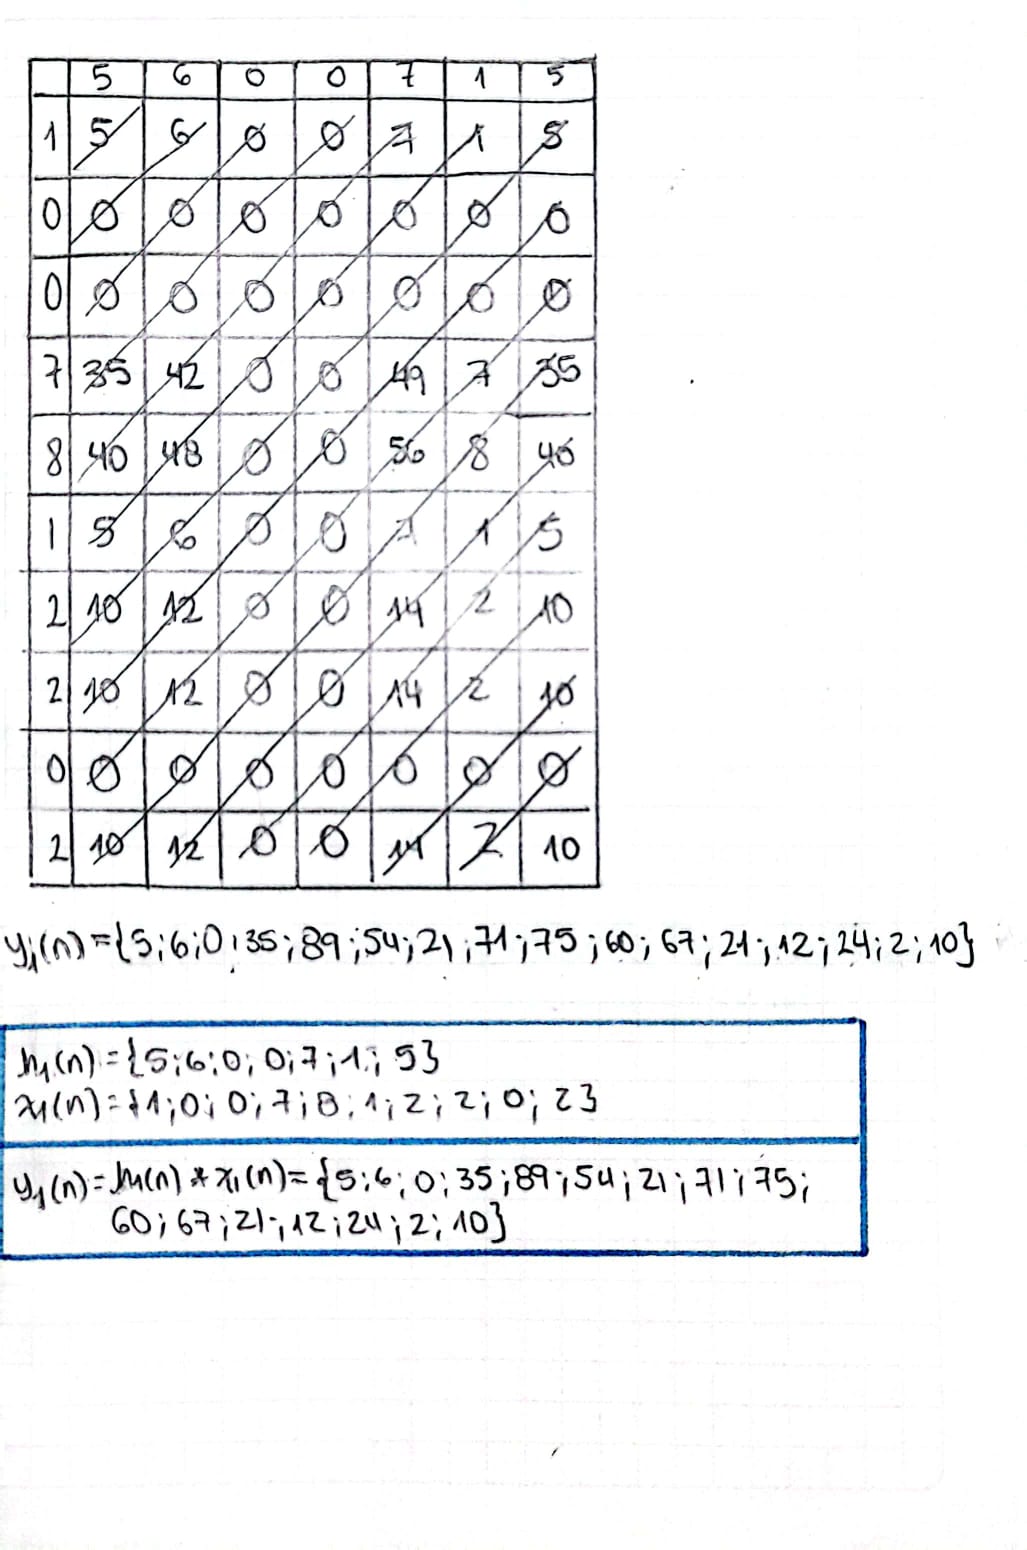 5 6 0 0 7 1 5
1 5 6 0 0 7 1 5
0 0 0 0 0 0 0 0
0 0 0 0 0 0 0 0
7 35 42 0 0 49 7 35
8 40 48 0 0 56 8 40
1 5 6 0 0 7 1 5
2 10 12 0 0 14 2 10
2 10 12 0 0 14 2 10
0 0 0 0 0 0 0 0
2 10 12 0 0 14 2 10
y₁(n)={5;6;0;35;89;54;21;71;75;60;67;21;12;24;2;10}
h₁(n)={5;6;0;0;7;1;5}
x₁(n)={1;0;0;7;8;1;2;2;0;2}
y₁(n)=h₁(n)*x₁(n)={5;6;0;35;89;54;21;71;75;
60;67;21;12;24;2;10}